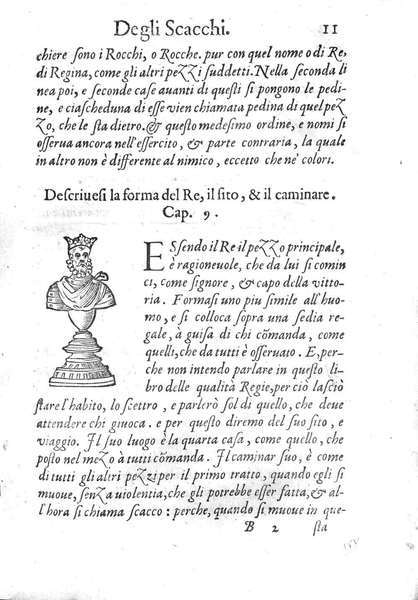 Degli Scacchi. 11
chiere ſono i Rocchi, o Rocche. pur con quel nome o di Re,
di Regina, come gli altri pezzi ſuddetti. Nella ſeconda li
nea poi, e ſeconde caſe auanti di queſti ſi pongono le pedi
ne, e ciaſcheduna di eſſe vien chiamata pedina di quel pez
zo, che le ſta dietro. & queſto medeſimo ordine, e nomi ſi
oſſerua ancora nell'eſſercito, & parte contraria, la quale
in altro non è differente al nimico, eccetto che ne' colori.
Deſcriueſi la forma del Re, il ſito, & il caminare.
Cap. 9.
ESſendo il Re il pezzo principale,
è ragioneuole, che da lui ſi comin
ci, come ſignore, & capo della vitto-
ria. Formaſi uno piu ſimile all'huo-
mo, e ſi colloca ſopra una ſedia re-
gale, à guiſa di chi cõmanda, come
quelli, che da tutti è oſſeruato. E, per-
che non intendo parlare in queſto li-
bro delle qualità Regie, per ciò laſciò
ſtare l'habito, lo ſcettro, e parlerò ſol di quello, che deue
attendere chi giuoca. e per queſto diremo del ſuo ſito, e
viaggio. Il ſuo luogo è la quarta caſa, come quello, che
poſto nel mezo à tutti cõmanda. Il caminar ſuo, è come
di tutti gli altri pezzi per il primo tratto, quando egli ſi
muoue, ſenza uiolentia, che gli potrebbe eſſer fatta, & al-
l'hora ſi chiama ſcacco: perche, quando ſi muoue in que-
B 2 ſta